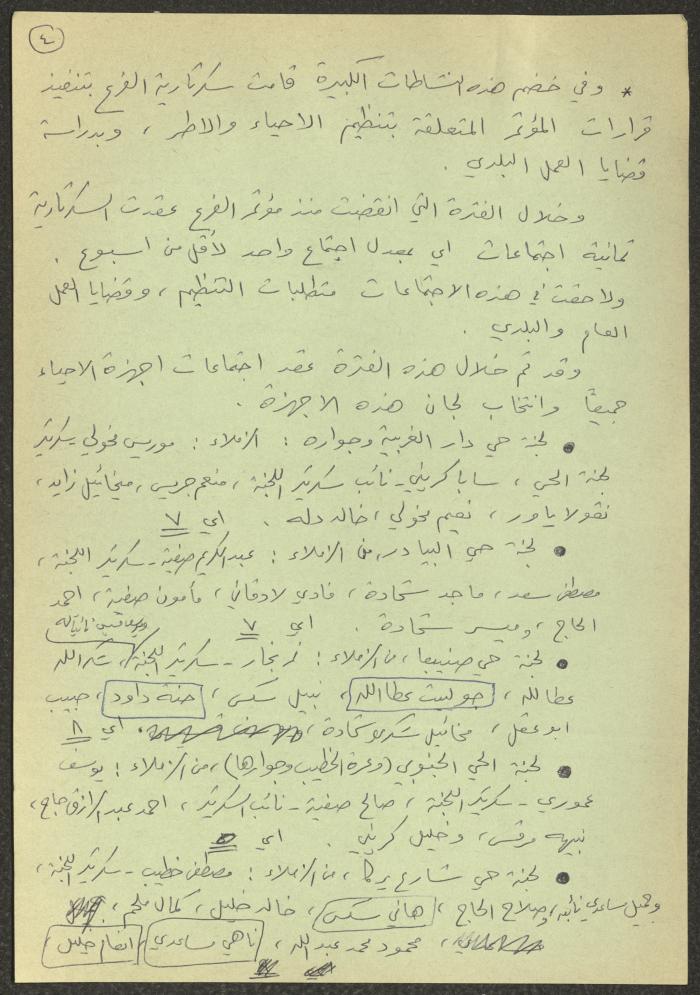 ٤
* وفي خضم هذه النشاطات الكبيرة قامت سكرتارية الفرع بتنفيذ
قرارات المؤتمر المتعلقة بتنظيم الاحياء والاطر، وبدراسة
قضايا العمل البلدي.
وخلال الفترة التي انقضت منذ مؤتمر الفرع عقدت السكرتارية
ثمانية اجتماعات اي بمعدل اجتماع واحد لأقل من اسبوع.
ولاحقت في هذه الاجتماعات متطلبات التنظيم، وقضايا العمل
العام والبلدي.
وقد تم خلال هذه الفترة عقد اجتماعات اجهزة الاحياء
جميعاً وانتخاب لجان هذه الاجهزة.
● لجنة حي دار الغربية وجواره: الزملاء: موريس مخولي سكرتير
لجنة الحي، سابا كريني - نائب سكرتير اللجنة، منعم جريس، ميخائيل زايد،
نقولا ياور، نعيم مخولي، خالد دله. اي ٧
● لجنة حي البيادر، من الزملاء: عبد الكريم صفية - سكرتير اللجنة،
مصطفى سعد، ماجد شحادة، فادي لادقاني، مأمون صفية، احمد
الحاج، وميسر شحادة. اي ٧
● لجنة حي صنيبعا، من الزملاء: نمر نجار - سكرتير اللجنة، شكرالله
عطالله، جولييت عطاالله، نبيل سكس، حنة داود، حبيب
ابو عقل، مخائيل شكري شحادة، اي ٨
● لجنة الحي الجنوبي (وعرة الخطيب وجوارها)، من الزملاء: يوسف
عموري - سكرتير اللجنة، صالح صفية - نائب السكرتير، احمد عبد الرازق حاج،
نبيه مرقس، وخليل كريني. اي
● لجنة حي شارع يركا، من الزملاء: مصطفى خطيب - سكرتير اللجنة،
وجميل ساعدي نائبه، وصلاح الحاج، هاني سكس، خالد خليل، كمال ملحم،
محمود محمد عبدالله، ناهي مساعدي، انعام خليل